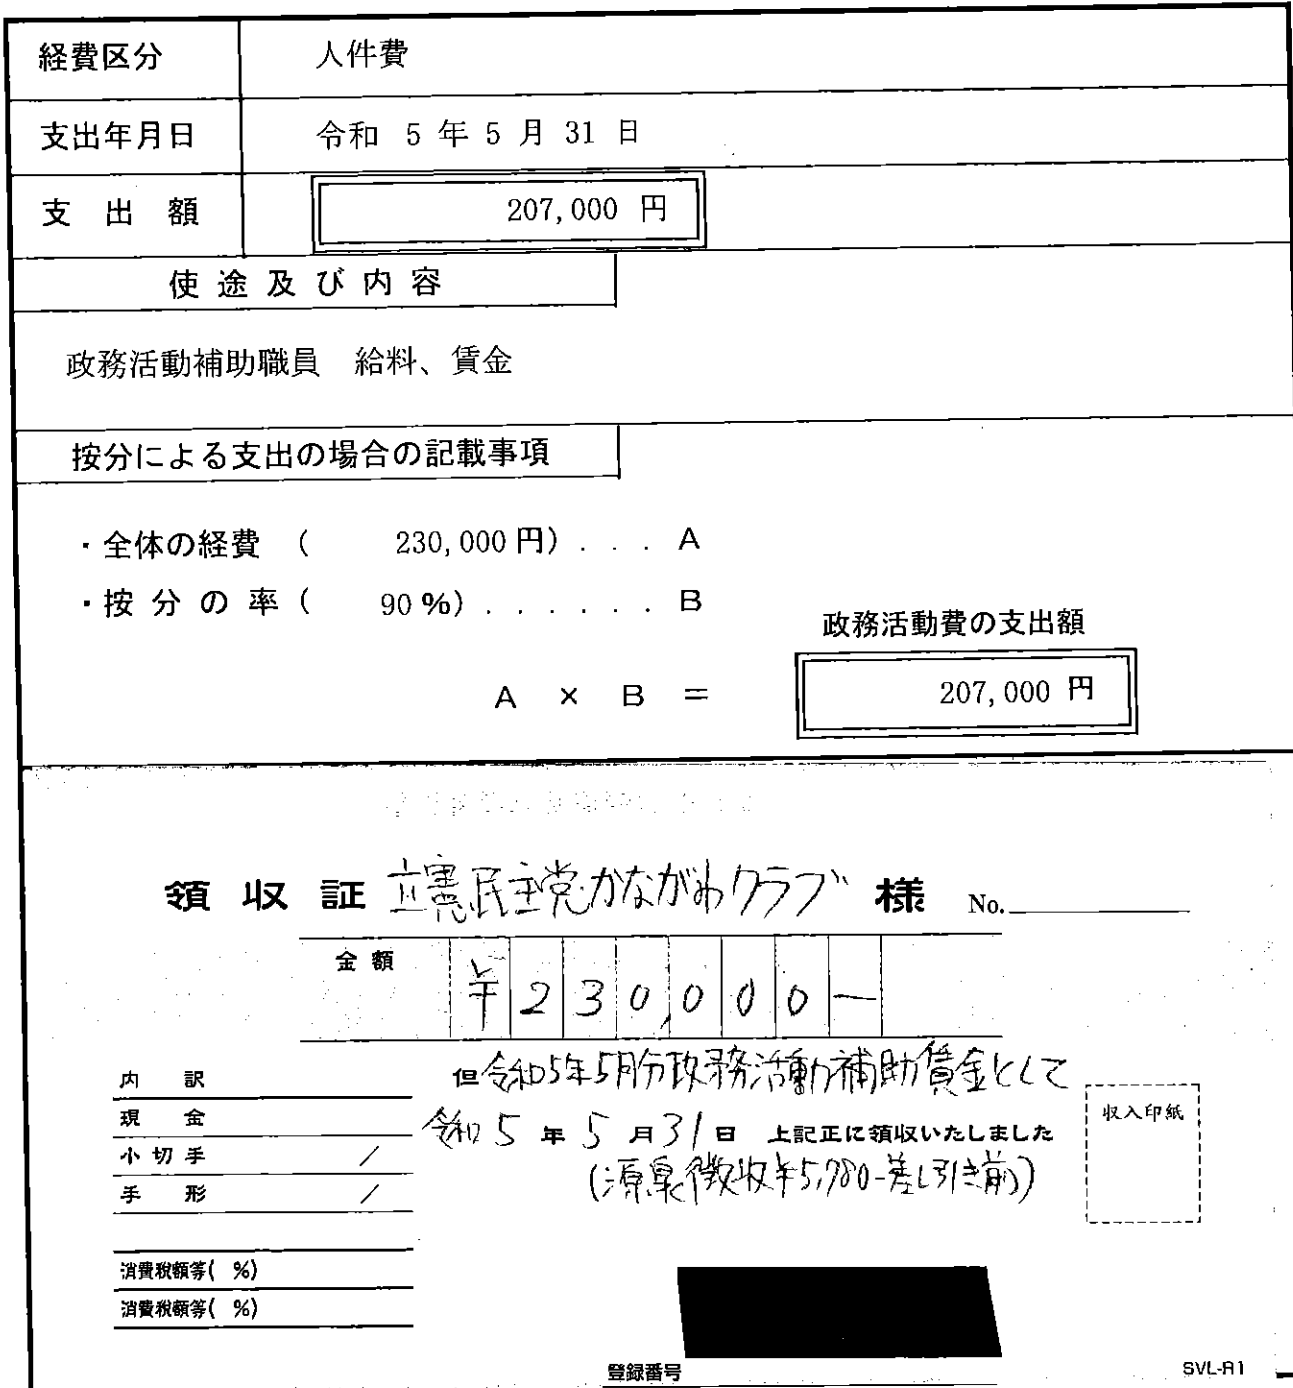 経費区分 人件費
支出年月日 令和 5 年 5 月 31 日
支出額 207,000 円
使途及び内容
政務活動補助職員 給料、賃金
按分による支出の場合の記載事項
・全体の経費 ( 230,000 円) . . . A
・按分の率 ( 90 %) . . . . . . B
政務活動費の支出額
A × B = 207,000 円
領収証 立憲民主党かながわクラブ 様 No.
金額 ¥230,000—
但 令和5年5月分政務活動補助賃金として
内訳
現金
令和 5 年 5 月 31 日 上記正に領収いたしました
収入印紙
小切手 /
(源泉徴収¥5,780-差し引き前)
手形 /
消費税額等( %)
消費税額等( %)
登録番号
SVL-R1